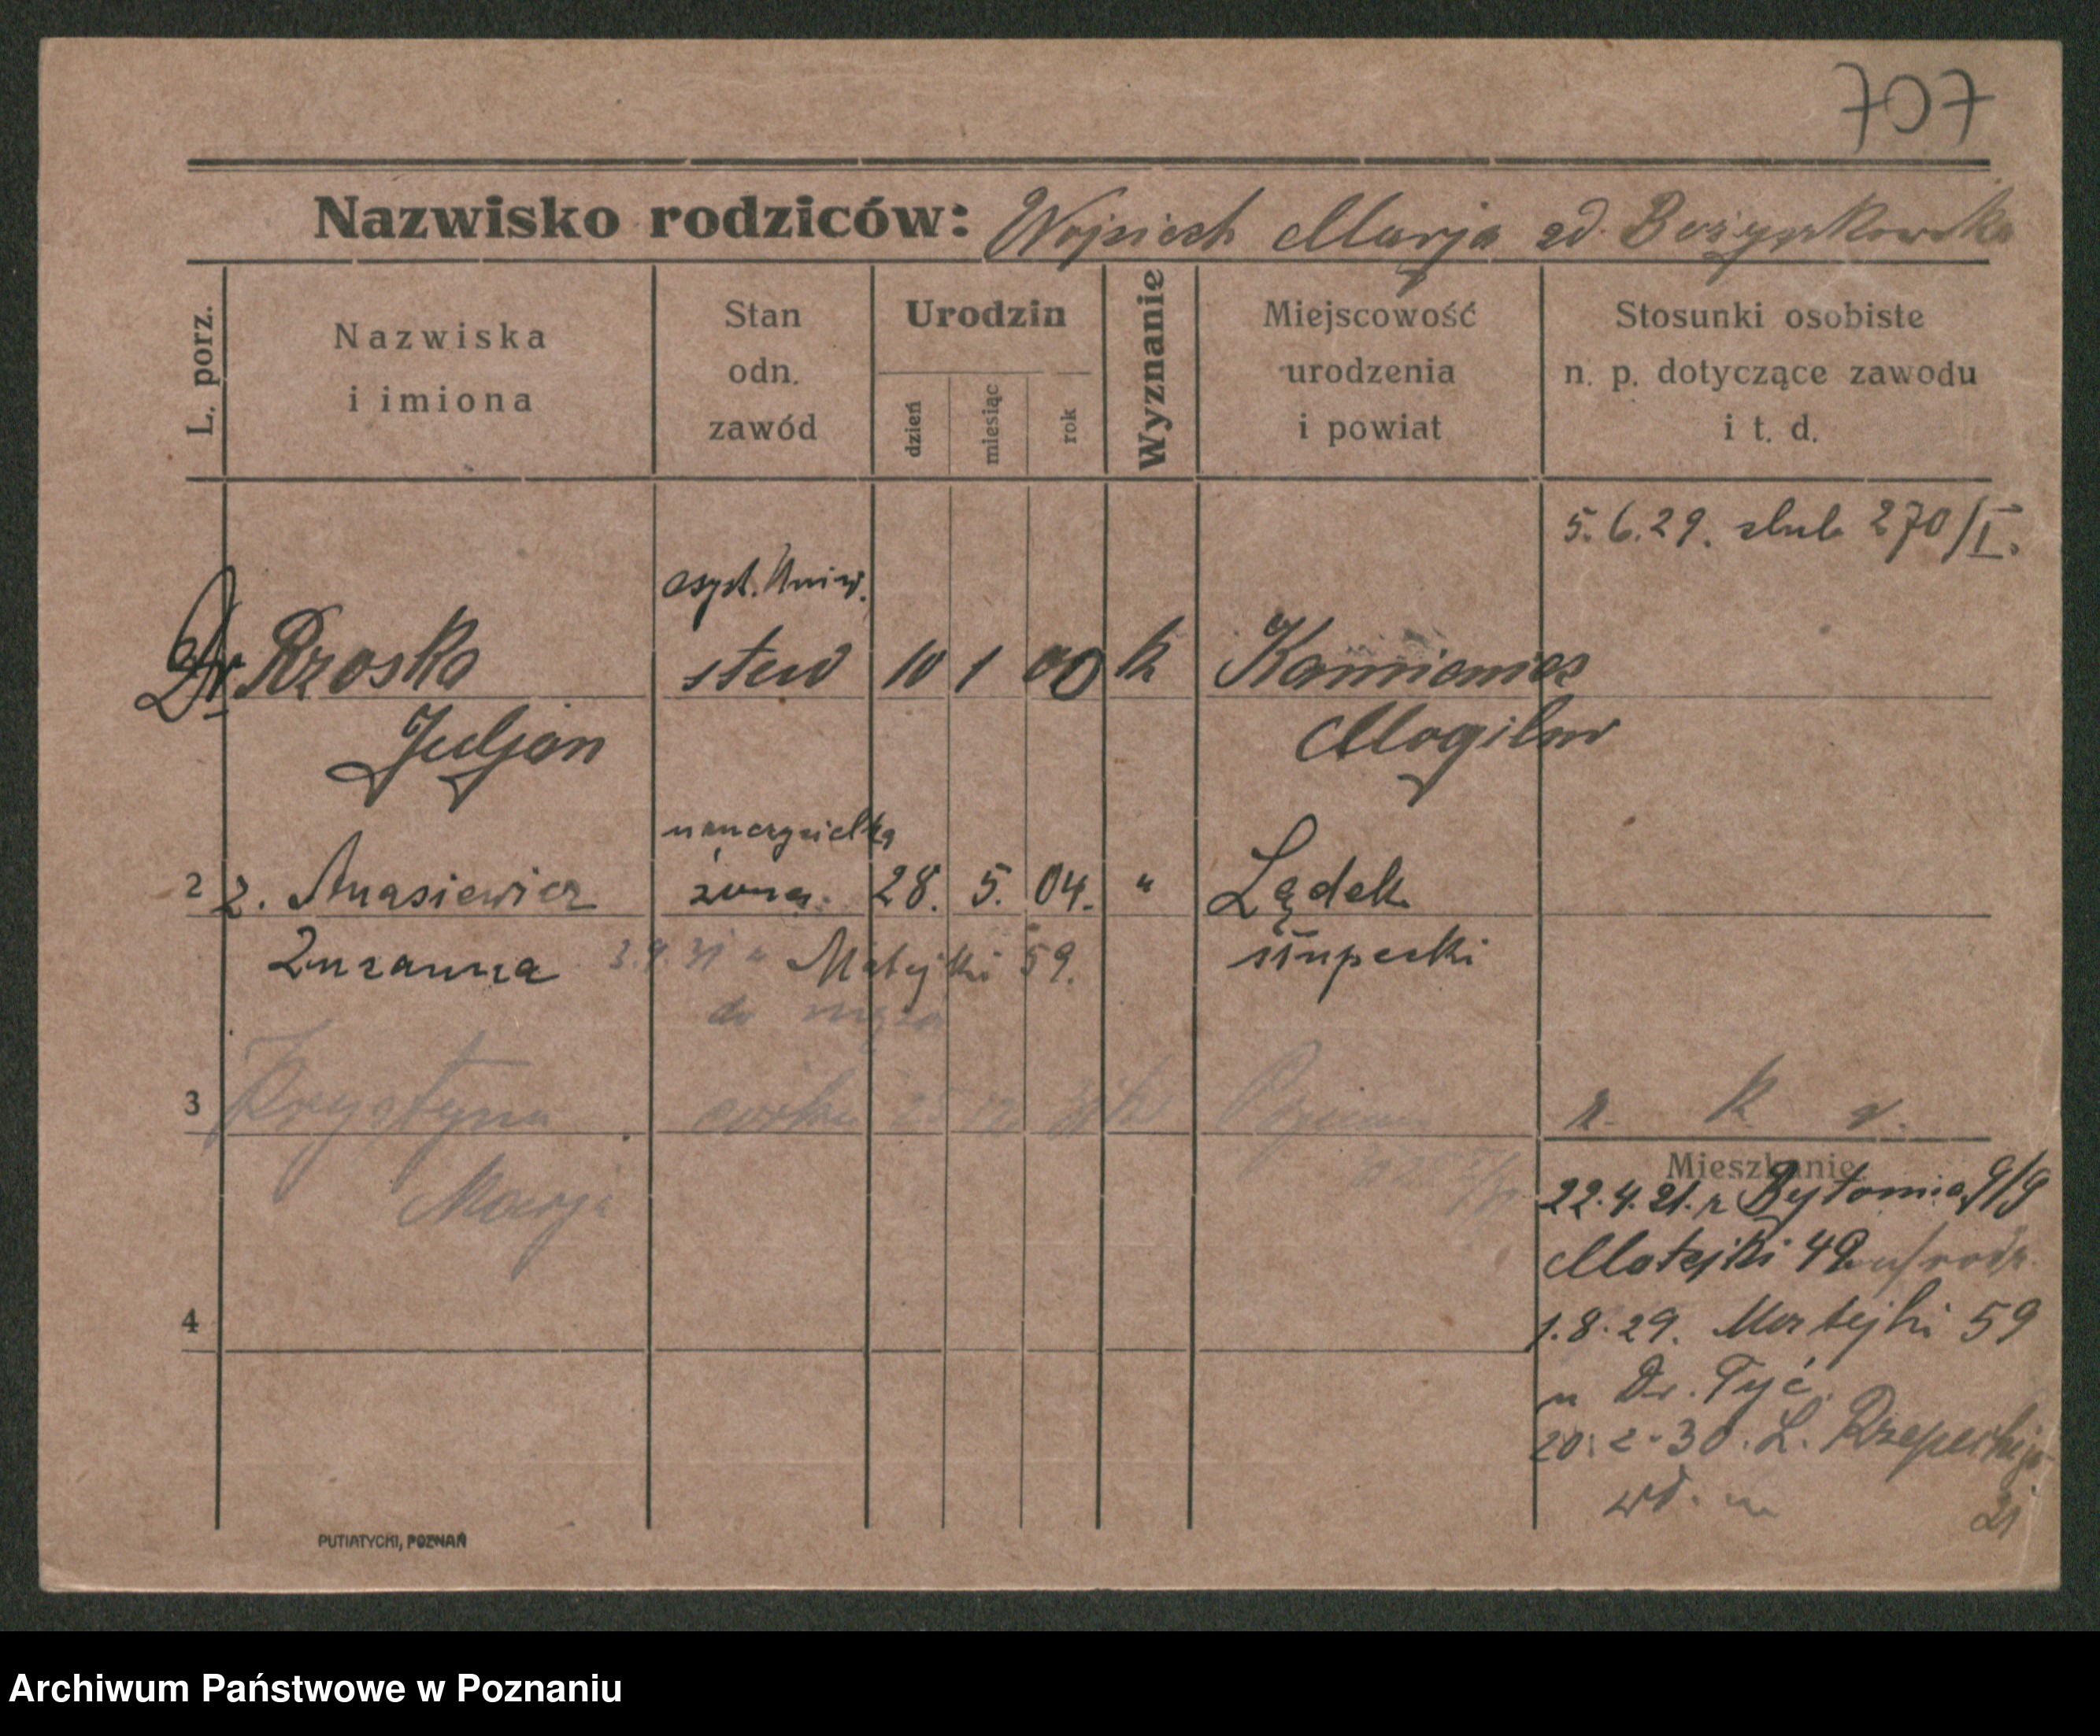 707
Nazwisko rodziców: Wojciech Marja zd.
L. porz.
Nazwiska i imiona
Stan odn. zawód
Urodzin
dzień
miesiąc
rok
Wyznanie
Miejscowość urodzenia i powiat
Stosunki osobiste n. p. dotyczące zawodu i t. d.
5.6.29. ślub 270/I.
asyst. Uniw.
Dr Rzoska stud 10 1 00 k Kamieniec
Juljan Mogilno
nauczycielka
2 2. Anasiewicz żona. 28. 5. 04. " Lądek
Zuzanna 3.9.31 " Matejki 59. słupecki
do męża
3 Krystyna córka 25 12 k Poznań
r. k. v.
Marja
Mieszkanie
22.4.21. z Bytomia 9/9
Matejki 49
4
1.8.29. Matejki 59
u Dr. Tyć.
20.2.30. L. Rzepeckiego
PUTIATYCKI, POZNAŃ
Archiwum Państwowe w Poznaniu